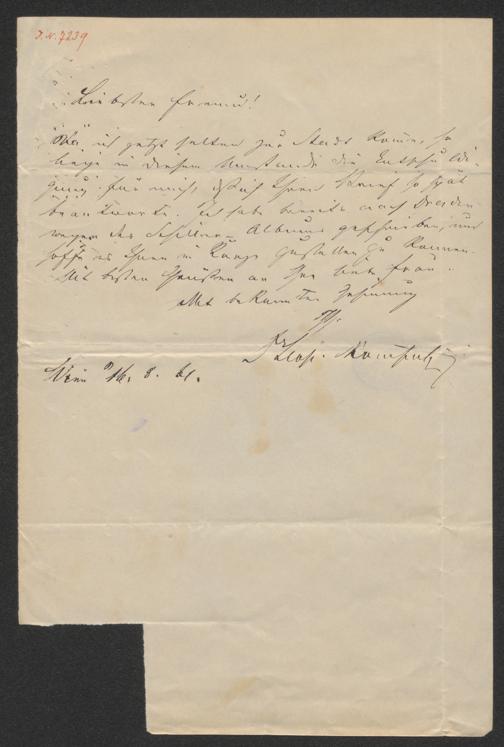 I.N. 7239
Liebster Freund!
Da ich jetzt selten zur Stadt komme, so
liegt in diesem Umstande die Entschuldi-
gung für mich, daß ich Ihren Brief so spät
beantworte. Ich habe bereits nach Dresden
wegen des Schiller-Albums geschrieben, und
hoffe es Ihnen in Kürze zustellen zu können.
Mit besten Grüßen an Ihre liebe Frau.
Mit bekannter Gesinnung
Ihr
Wien 16. 8. 61.